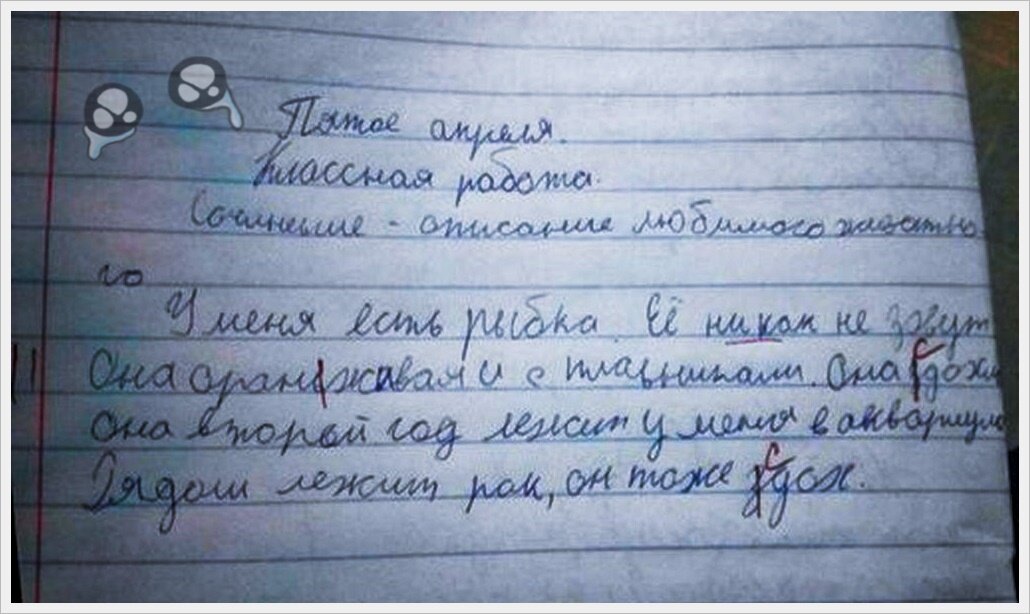 Пятое апреля.
Классная работа.
Сочинение - описание любимого животно-
го
У меня есть рыбка. Её никак не зовут
Она оранжевая и с плавниками. Она сдохла
она второй год лежит у меня в аквариуме
Рядом лежит рак, он тоже сдох.